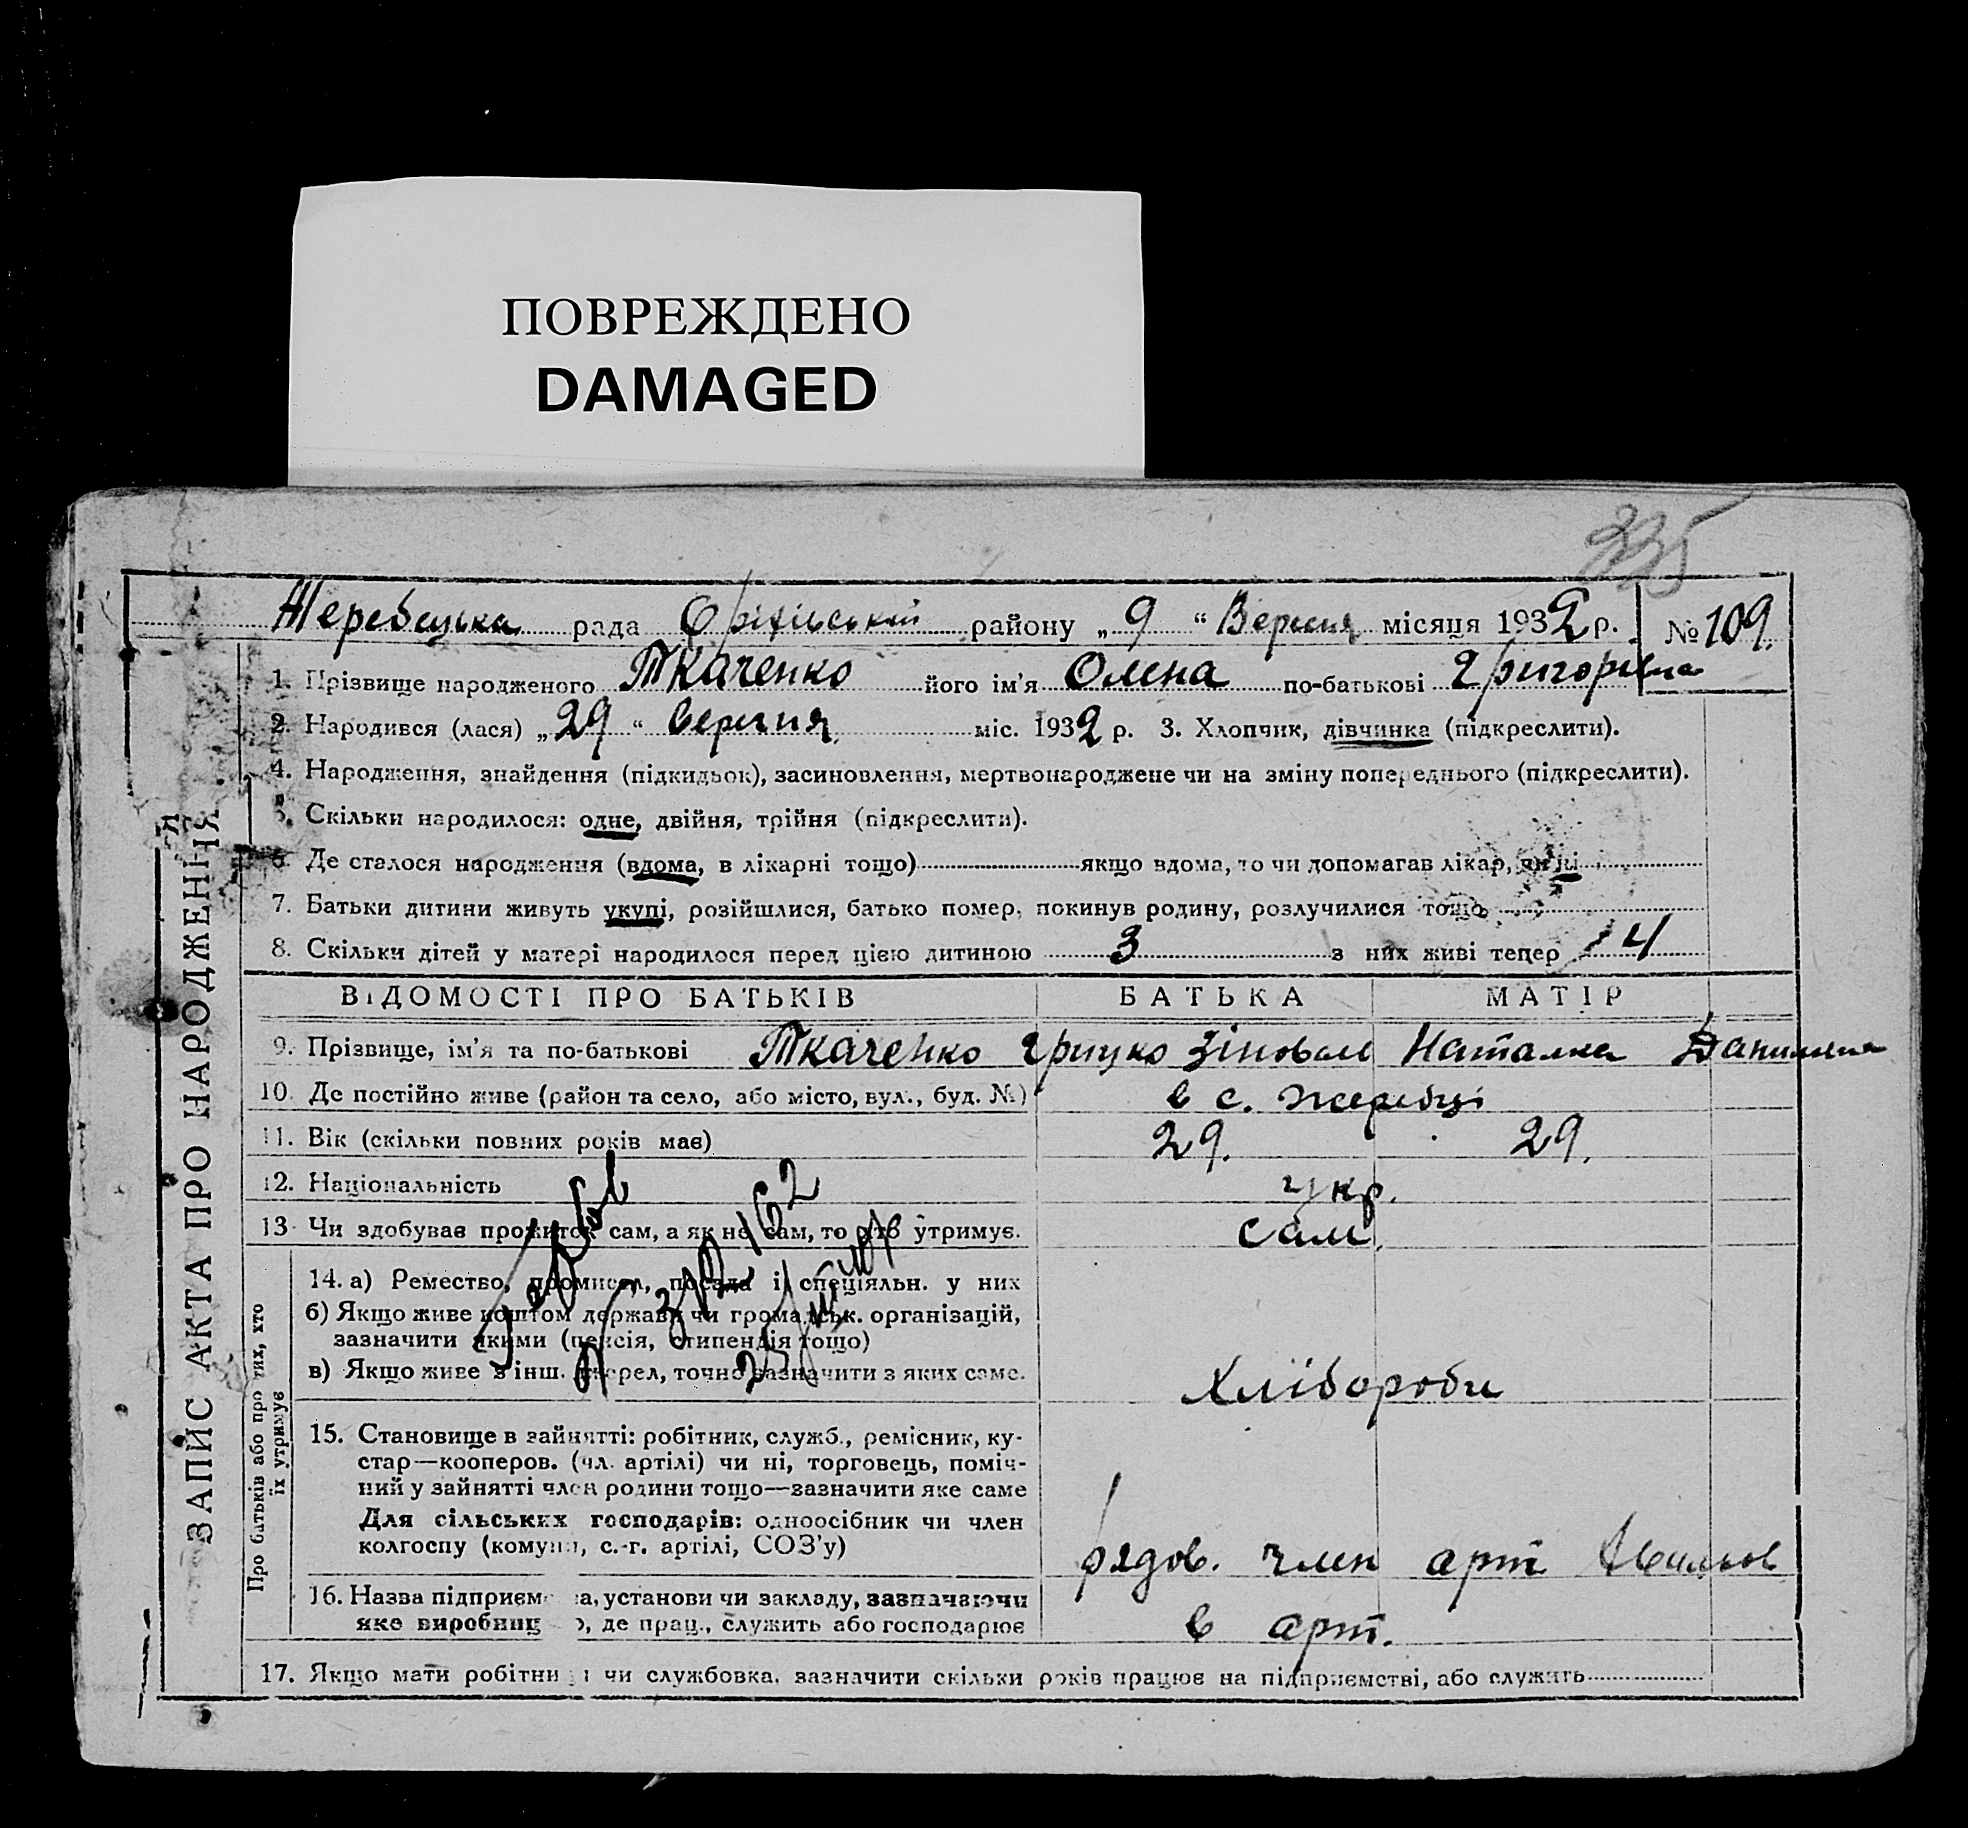 ПОВРЕЖДЕНО
DAMAGED
335
Жеребецька рада Оріхівський району „ 9 “ Вересня місяця 1932 р. № 109.
1. Прізвище народженого Ткаченко його ім’я Олена по-батькові Григорівна
2. Народився (лася) „ 29 “ Вересня міс. 1932 р. 3. Хлопчик, дівчинка (підкреслити).
4. Народження, знайдення (підкидьок), засиновлення, мертвонароджене чи на зміну попереднього (підкреслити).
5. Скільки народилося: одне, двійня, трійня (підкреслити).
6. Де сталося народження (вдома, в лікарні тощо) якщо вдома, то чи допомагав лікар, чи ні
7. Батьки дитини живуть укупі, розійшлися, батько помер, покинув родину, розлучилися тощо
8. Скільки дітей у матері народилося перед цією дитиною 3 з них живі тепер 4
ВІДОМОСТІ ПРО БАТЬКІВ БАТЬКА МАТІР
9. Прізвище, ім’я та по-батькові Ткаченко Грицко Зінов Наталка Данилівна
10. Де постійно живе (район та село, або місто, вул., буд. №) в с. Жеребці
11. Вік (скільки повних років має) 29. 29.
12. Національність укр.
13. Чи здобував прожиток сам, а як не сам, то хто утримує. сам.
14. а) Ремество, промисел, посада і спеціяльн. у них
б) Якщо живе коштом держави чи громадськ. організацій,
зазначити якими (пенсія, стипендія тощо)
в) Якщо живе з інш. джерел, точно зазначити з яких саме. Хлібороби
15. Становище в зайнятті: робітник, служб., ремісник, ку-
стар—кооперов. (чл. артілі) чи ні, торговець, поміч-
ний у зайнятті член родини тощо—зазначити яке саме
Для сільських господарів: одноосібник чи член
колгоспу (комуни, с.-г. артілі, СОЗ’у) рядов. член арт
16. Назва підприєм а, установи чи закладу, зазначаючи
яке виробниц о, де прац., служить або господарює в арт.
17. Якщо мати робітни чи службовка, зазначити скільки років працює на підприємстві, або служить
ЗАПИС АКТА ПРО НАРОДЖЕННЯ
Про батьків або про тих, хто
їх утримує